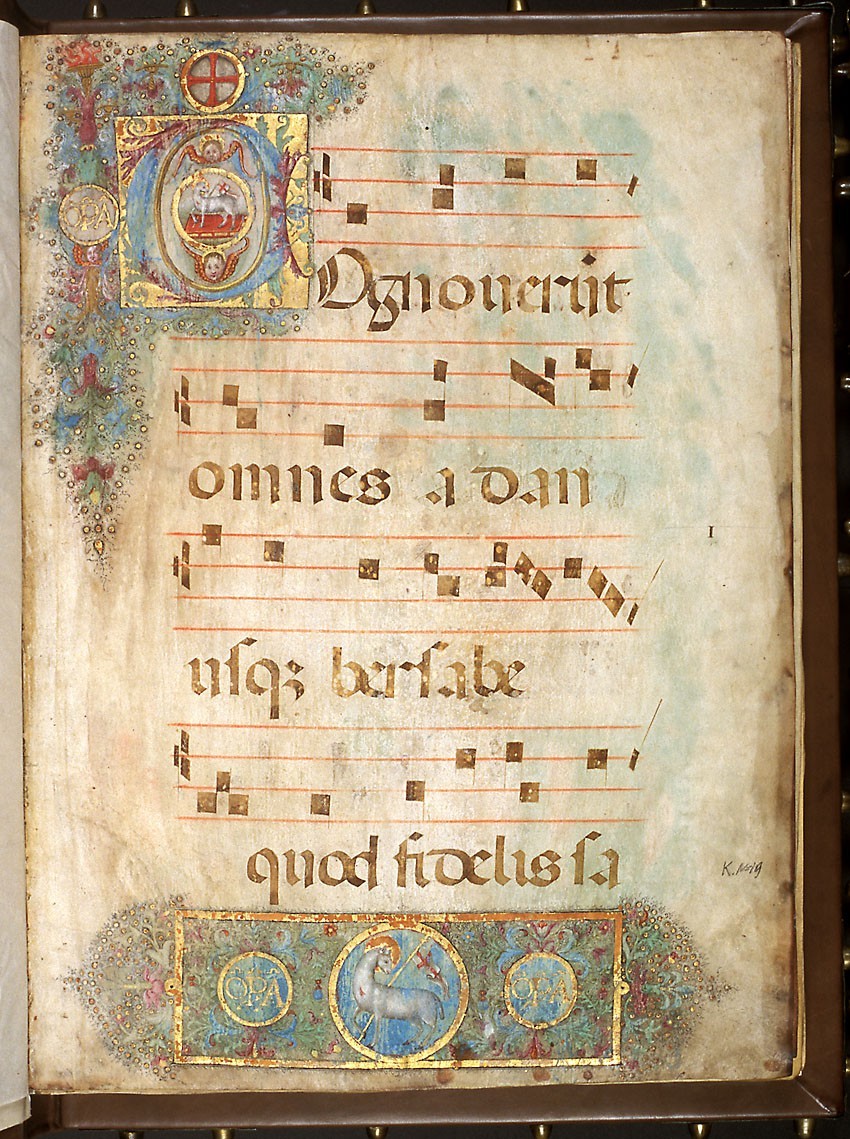 OPA
COgnouerūt
omnes a dan
I
uſqꝫ berſabe
quod fidelis ſa
OPA OPA